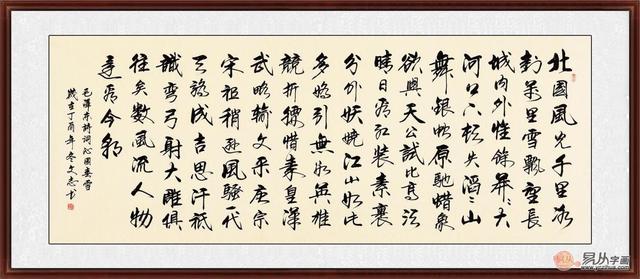 北國風光千里冰
封萬里雪飄望長
城内外惟餘莽〻大
河上下頓失滔〻山
舞銀蛇原馳蠟象
欲與天公試比高須
晴日看紅裝素裹
分外妖嬈江山如此
多嬌引無數英雄
競折腰惜秦皇漢
武略輸文采唐宗
宋祖稍遜風騷一代
天驕成吉思汗祇
識彎弓射大雕俱
往矣數風流人物
還看今朝
毛澤東詩詞沁園春雪
歲在丁酉年冬文志书
易从字画